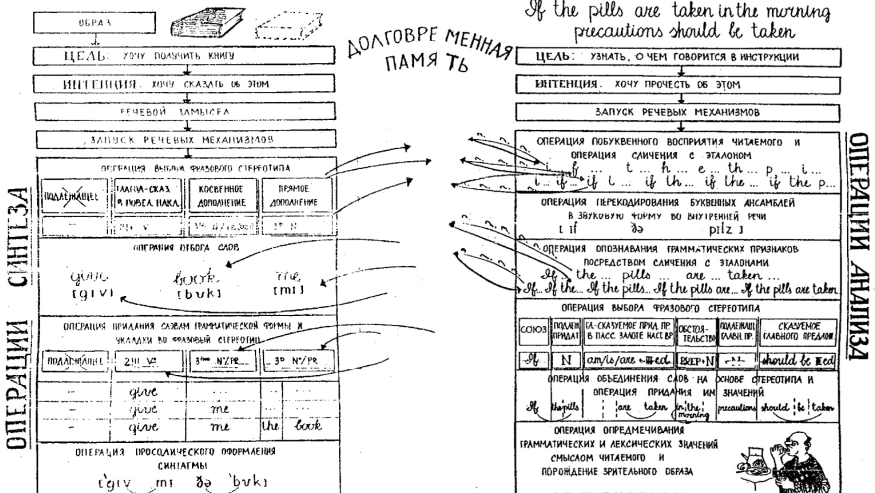 ОБРАЗ
ЦЕЛЬ: ХОЧУ ПОЛУЧИТЬ КНИГУ
ИНТЕНЦИЯ: ХОЧУ СКАЗАТЬ ОБ ЭТОМ
РЕЧЕВОЙ ЗАМЫСЕЛ
ЗАПУСК РЕЧЕВЫХ МЕХАНИЗМОВ
ОПЕРАЦИИ СИНТЕЗА
ОПЕРАЦИЯ ВЫБОРА ФРАЗОВОГО СТЕРЕОТИПА
ПОДЛЕЖАЩЕЕ
ГЛАГОЛ-СКАЗ. В ПОВЕЛ. НАКЛ.
КОСВЕННОЕ ДОПОЛНЕНИЕ
ПРЯМОЕ ДОПОЛНЕНИЕ
ОПЕРАЦИЯ ОТБОРА СЛОВ
give book me
[gɪv] [bʊk] [mɪ]
ОПЕРАЦИЯ ПРИДАНИЯ СЛОВАМ ГРАММАТИЧЕСКОЙ ФОРМЫ И
УКЛАДКИ ВО ФРАЗОВЫЙ СТЕРЕОТИП
ПОДЛЕЖАЩЕЕ
– give ... ...
– give me ...
– give me the book
ОПЕРАЦИЯ ПРОСОДИЧЕСКОГО ОФОРМЛЕНИЯ
СИНТАГМЫ
['gɪv mɪ ðə 'bʊk]
ДОЛГОВРЕМЕННАЯ
ПАМЯТЬ
If the pills are taken in the morning
precautions should be taken
ЦЕЛЬ: УЗНАТЬ, О ЧЕМ ГОВОРИТСЯ В ИНСТРУКЦИИ
ИНТЕНЦИЯ: ХОЧУ ПРОЧЕСТЬ ОБ ЭТОМ
ЗАПУСК РЕЧЕВЫХ МЕХАНИЗМОВ
ОПЕРАЦИИ АНАЛИЗА
ОПЕРАЦИЯ ПОБУКВЕННОГО ВОСПРИЯТИЯ ЧИТАЕМОГО И
ОПЕРАЦИЯ СЛИЧЕНИЯ С ЭТАЛОНОМ
i... f ... t ... h ... e ... th ... p ... i ...
i ... if ... if t ... if th ... if the ... if the p...
ОПЕРАЦИЯ ПЕРЕКОДИРОВАНИЯ БУКВЕННЫХ АНСАМБЛЕЙ
В ЗВУКОВУЮ ФОРМУ ВО ВНУТРЕННЕЙ РЕЧИ
[ ɪf ðə pɪlz ]
ОПЕРАЦИЯ ОПОЗНАВАНИЯ ГРАММАТИЧЕСКИХ ПРИЗНАКОВ
ПОСРЕДСТВОМ СЛИЧЕНИЯ С ЭТАЛОНАМИ
If ... the ... pills ... are ... taken ...
If... If the... If the pills... If the pills are... If the pills are taken
ОПЕРАЦИЯ ВЫБОРА ФРАЗОВОГО СТЕРЕОТИПА
СОЮЗ
ПОДЛЕЖ. ПРИДАТ.
ГЛ-СКАЗУЕМОЕ ПРИД. ПР. В ПАСС. ЗАЛОГЕ НАСТ. ВР.
ОБСТОЯТЕЛЬСТВО
ПОДЛЕЖАЩ. ГЛАВН. ПР.
СКАЗУЕМОЕ ГЛАВНОГО ПРЕДЛОЖ.
If N am/is/are should be
ОПЕРАЦИЯ ОБЪЕДИНЕНИЯ СЛОВ НА ОСНОВЕ СТЕРЕОТИПА И
ОПЕРАЦИЯ ПРИДАНИЯ ИМ ЗНАЧЕНИЙ
If the pills are taken in the morning precautions should be taken
ОПЕРАЦИЯ ОПРЕДМЕЧИВАНИЯ
ГРАММАТИЧЕСКИХ И ЛЕКСИЧЕСКИХ ЗНАЧЕНИЙ
СМЫСЛОМ ЧИТАЕМОГО И
ПОРОЖДЕНИЕ ЗРИТЕЛЬНОГО ОБРАЗА